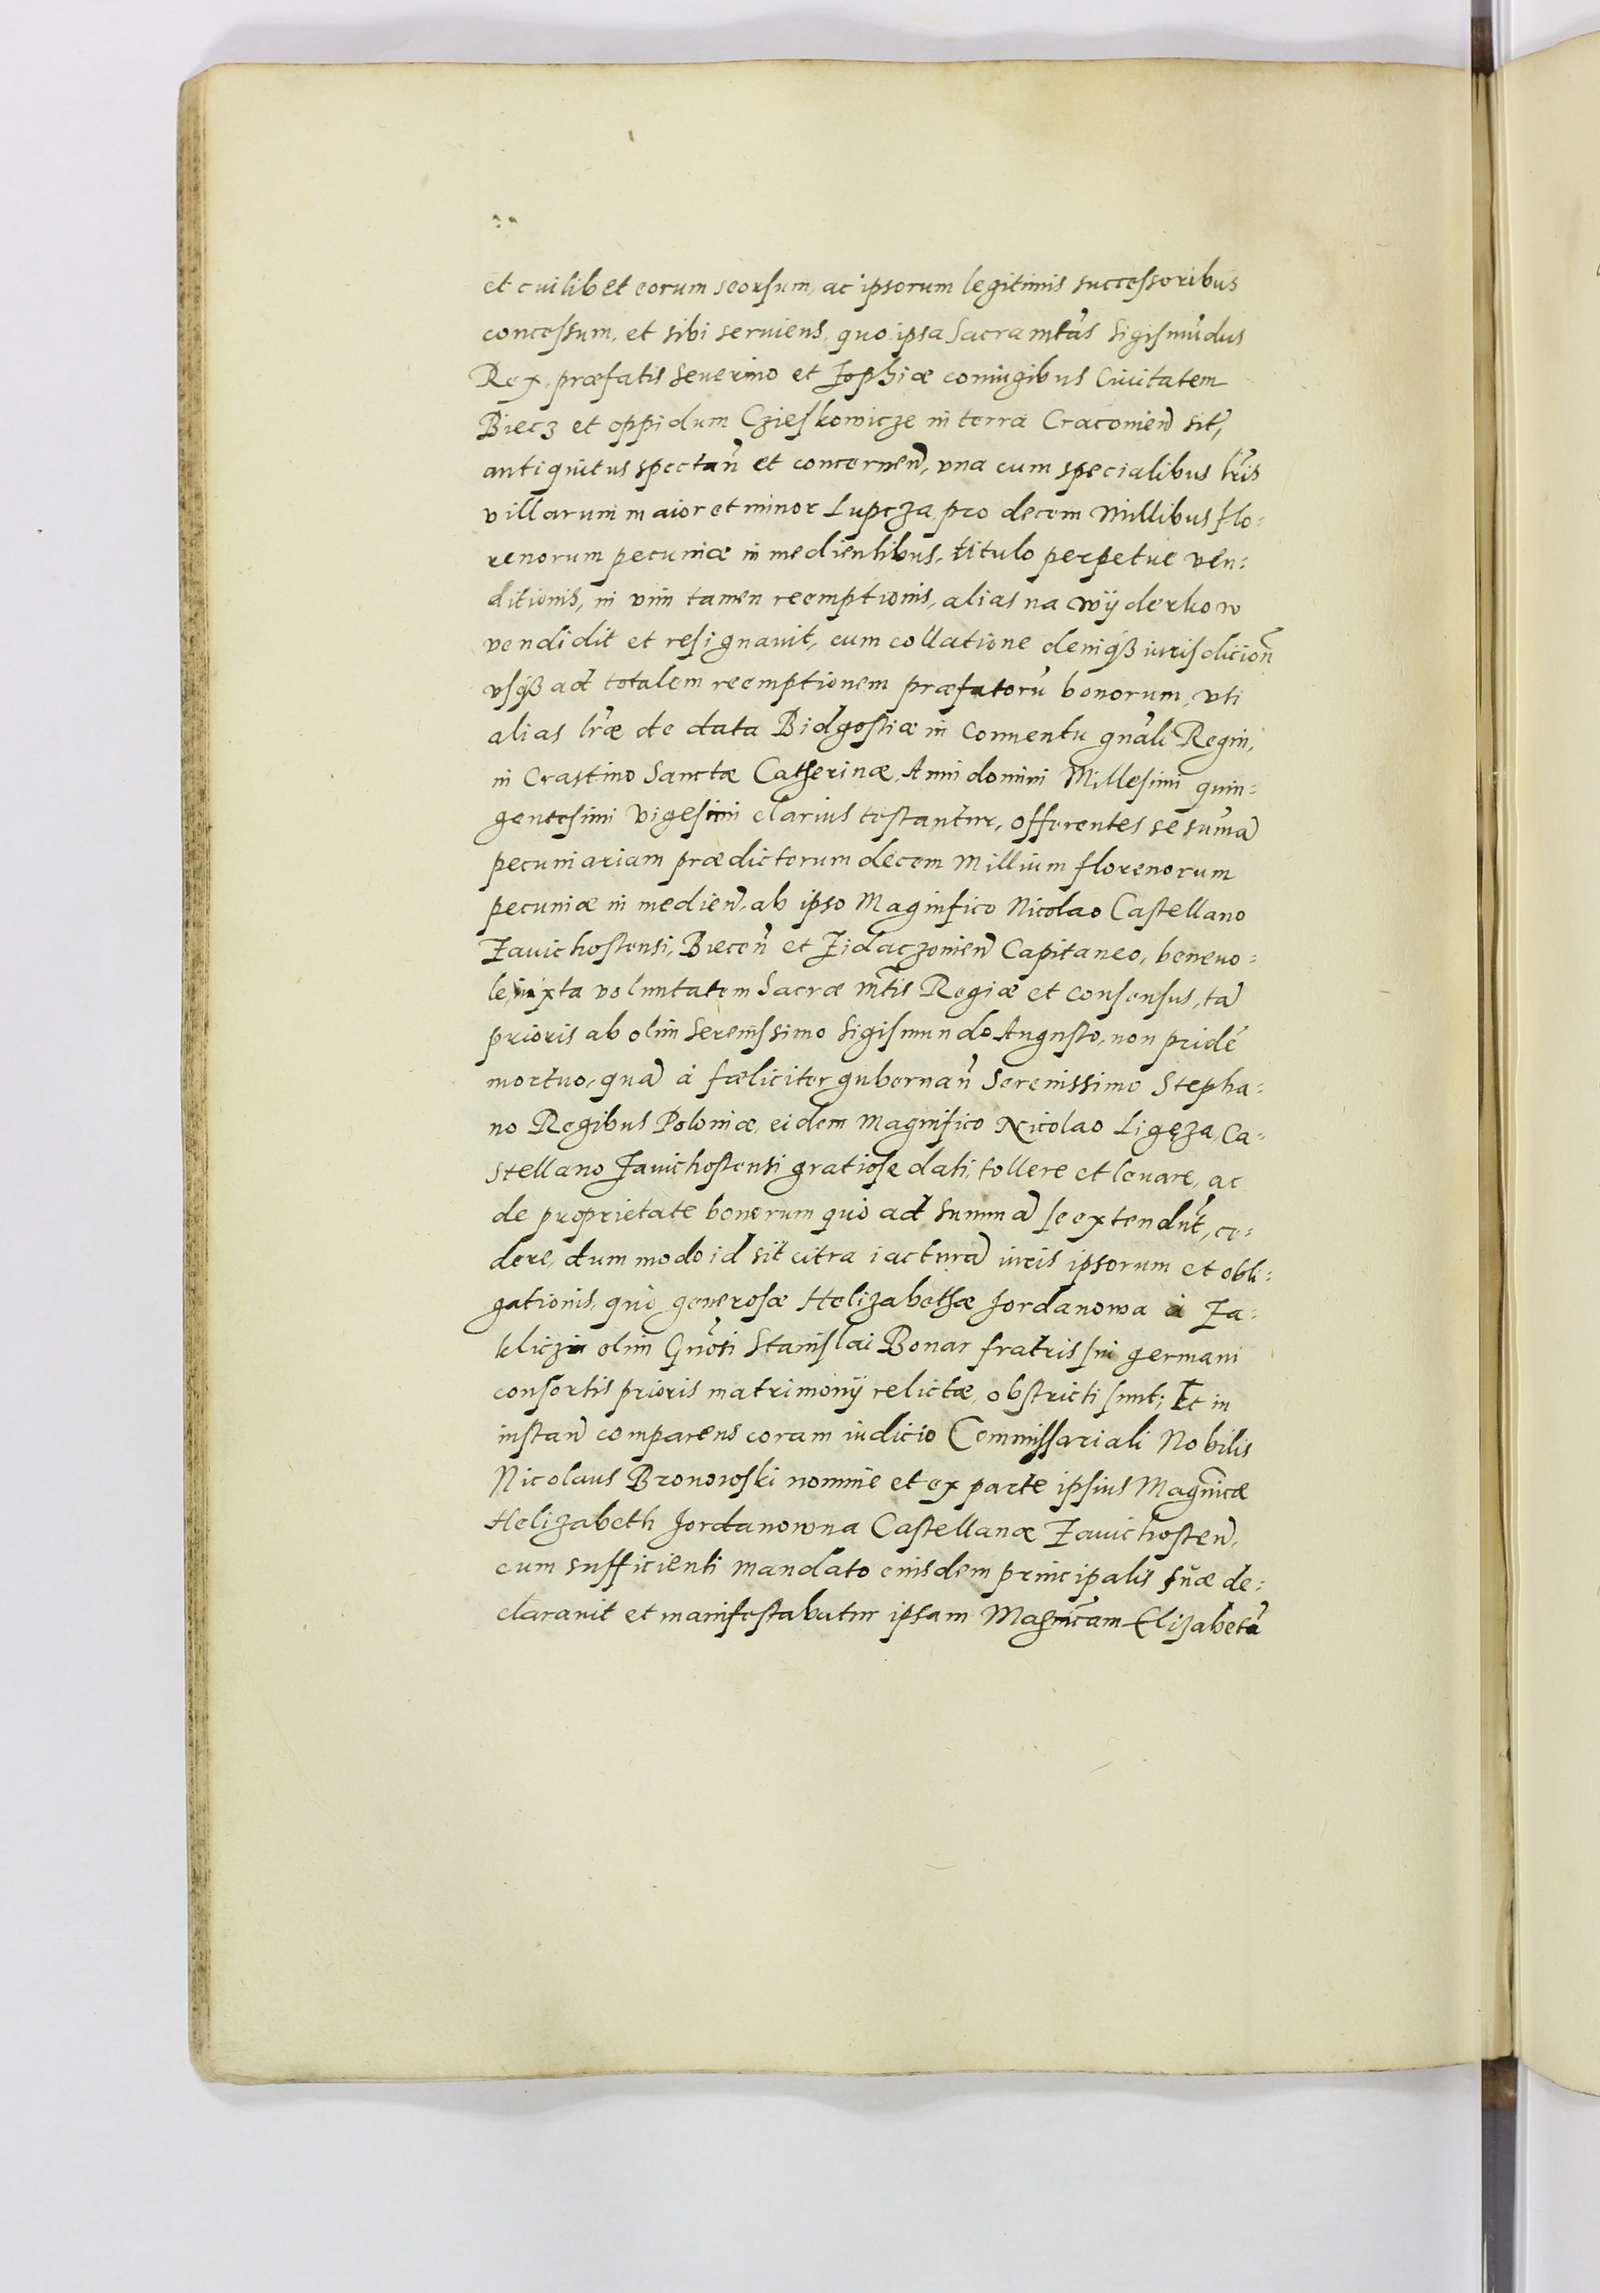 et cuilibet eorum seorsum, ac ipsorum legitimis successoribus
concessum, et sibi seruiens, quo ipsa Sacra mtãs Sigismũdus
Rex, præfatis Seuerino et Zophiæ coniugibus Ciuitatem
Biecz et oppidum Czieskowicze in terra Cracouien̄ sit,
antiquitus spectan̄ et concernen̄, vna cum specialibus lr̃is
villarum maior et minor Lupcza, pro decem Millibus flo=
renorum pecuniæ in medientibus, titulo perpetue ven=
ditionis, in vim tamen reemptionis, alias na wÿderkow
vendidit et resignauit, cum collatione deniqꝫ iurisdicion̄
vsqꝫ ad totalem reemptionem præfatorũ bonorum, vti
alias lr̃æ de data Bidgostiæ in Conuentu gn̄ali Regni,
in Crastino Sanctæ Catherinæ, Anni domini Millesimi quin=
gentesimi vigesimi clarius testantur, offerentes se sum̄ã
pecuniariam prædictorum decem Millium florenorum
pecuniæ in medien̄, ab ipso Magnifico Nicolao Castellano
Zauichostensi, Biecen̄ et Zidaczouien̄ Capitaneo, beneuo=
le, iuxta voluntatem Sacræ mt̃is Regiæ et consensus, tã
prioris ab olim Serenissimo Sigismundo Augusto, non pridẽ
mortuo, quã à fœliciter gubernan̄ Serenissimo Stepha=
no Regibus Poloniæ, eidem Magnifico Nicolao Ligęza, Ca=
stellano Zauichostensi gratiose dati, tollere et leuare, ac
de proprietate bonorum quò ad Summã se extendũt, ce=
dere, dum modo id sit citra iacturã iuris ipsorum et obli=
gationis, quò generosæ Helizabethæ Jordanowa à Za=
kliczin olim Gn̄osi Stanislai Bonar fratris sui germani
consortis prioris matrimonÿ relictæ, obstricti sunt; Et in
instan̄ comparens coram iudicio Commissariali Nobilis
Nicolaus Bronowski nomine et ex parte ipsius Magn̄icæ
Helizabeth Jordanowna Castellanæ Zauichosten̄,
cum sufficienti mandato eiusdem principalis suæ de=
clarauit et manifestabatur ipsam Magn̄icam Elizabetã